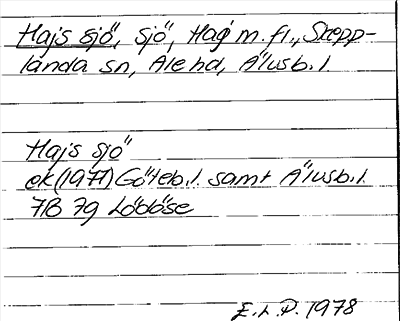 Hajs sjö, sjö, Hag m. fl., Skepp-
landa sn, Ale hd, Älvsb. l.
Hajs sjö
ek (1971) Göteb. l. samt Älvsb. l.
7B 7g Lödöse
E.L.P. 1978